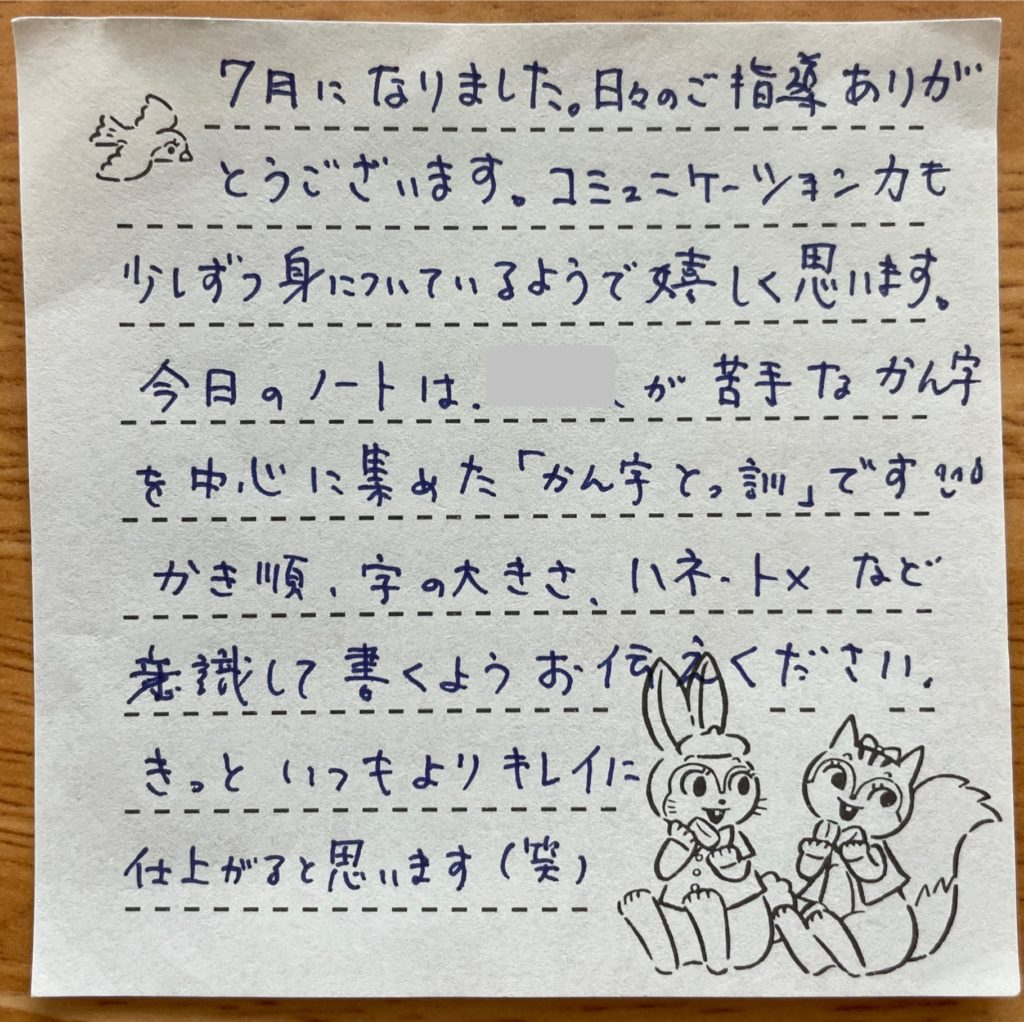 7月になりました。日々のご指導ありが
とうございます。コミュニケーション力も
少しずつ身についているようで嬉しく思います。
今日のノートは、が苦手なかん字
を中心に集めた「かん字とっ訓」です
かき順、字の大きさ、ハネ・トメなど
意識して書くようお伝えください。
きっといつもよりキレイに
仕上がると思います(笑)